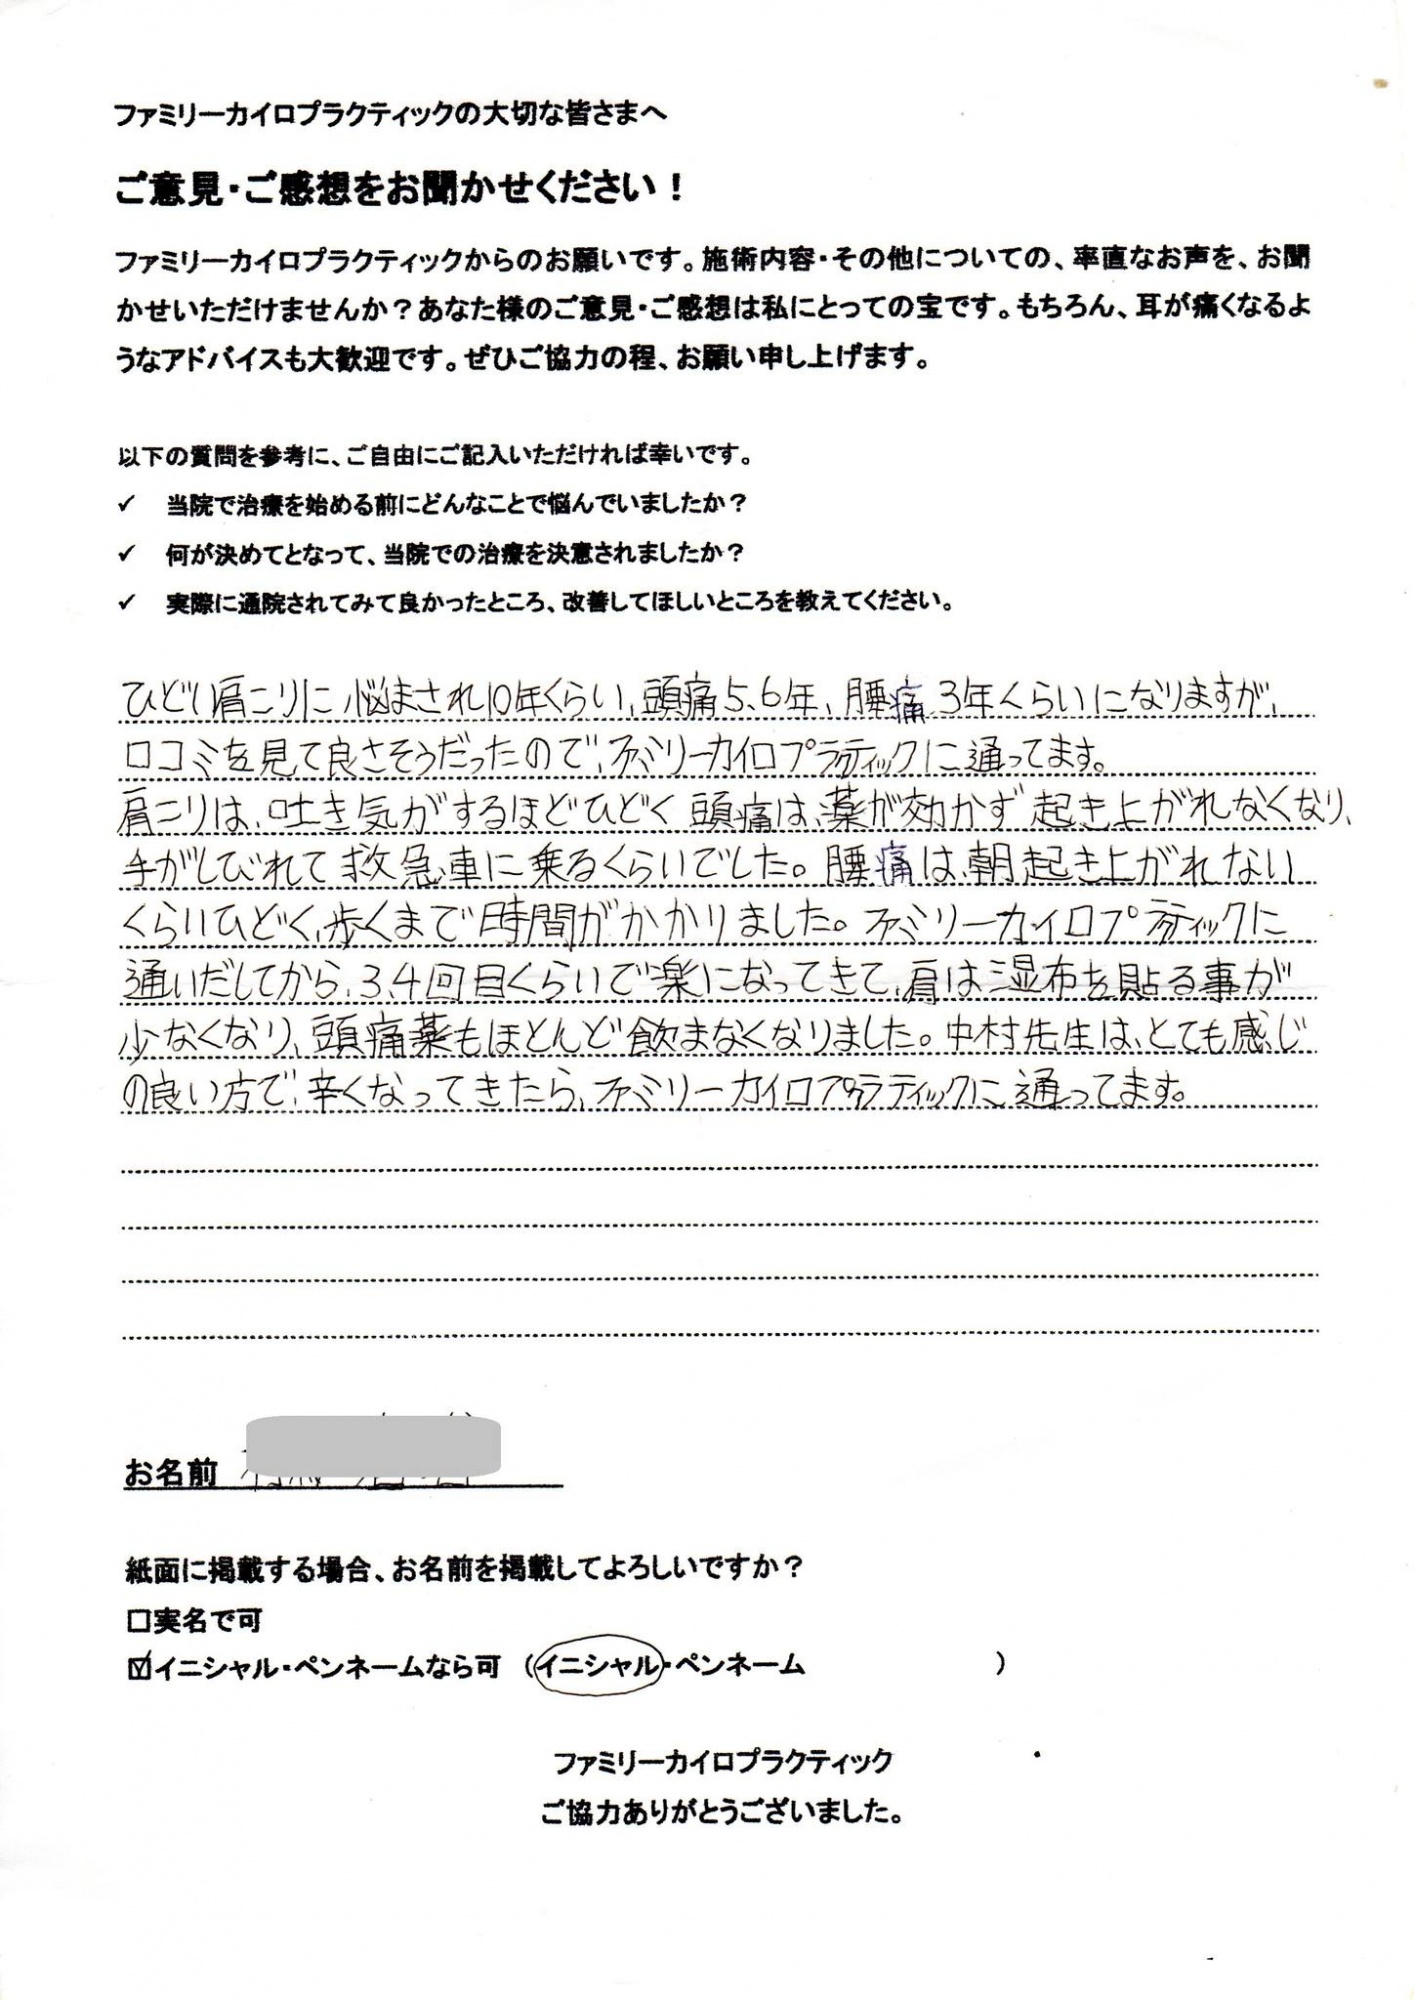 ファミリーカイロプラクティックの大切な皆さまへ
ご意見・ご感想をお聞かせください！
ファミリーカイロプラクティックからのお願いです。施術内容・その他についての、率直なお声を、お聞
かせいただけませんか？あなた様のご意見・ご感想は私にとっての宝です。もちろん、耳が痛くなるよ
うなアドバイスも大歓迎です。ぜひご協力の程、お願い申し上げます。
以下の質問を参考に、ご自由にご記入いただければ幸いです。
✓ 当院で治療を始める前にどんなことで悩んでいましたか？
✓ 何が決めてとなって、当院での治療を決意されましたか？
✓ 実際に通院されてみて良かったところ、改善してほしいところを教えてください。
ひどい肩こりに悩まされ10年くらい、頭痛5、6年、腰痛3年くらいになりますが、
口コミを見て良さそうだったので、ファミリーカイロプラティックに通ってます。
肩こりは、吐き気がするほどひどく 頭痛は、薬が効かず 起き上がれなくなり、
手がしびれて救急車に乗るくらいでした。腰痛は、朝起き上がれない
くらいひどく、歩くまで時間がかかりました。ファミリーカイロプラティックに
通いだしてから、3、4回目くらいで楽になってきて、肩は湿布を貼る事が
少なくなり、頭痛薬もほとんど飲まなくなりました。中村先生は、とても感じ
の良い方で、辛くなってきたら、ファミリーカイロプラティックに通ってます。
お名前
紙面に掲載する場合、お名前を掲載してよろしいですか？
□実名で可
☑イニシャル・ペンネームなら可 （イニシャル・ペンネーム ）
ファミリーカイロプラクティック
ご協力ありがとうございました。